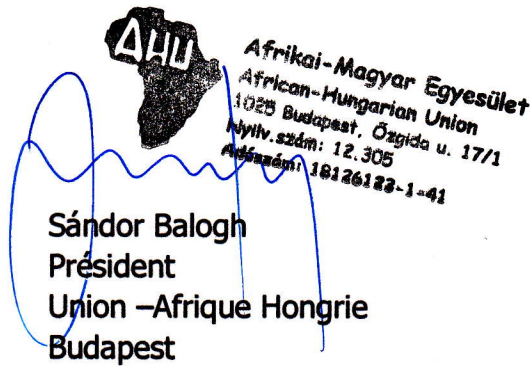 AHU
Afrikai-Magyar Egyesület
African-Hungarian Union
1025 Budapest, Őzgida u. 17/1
Nyilv.szám: 12.305
Adószám: 18126122-1-41
Sándor Balogh
Président
Union –Afrique Hongrie
Budapest